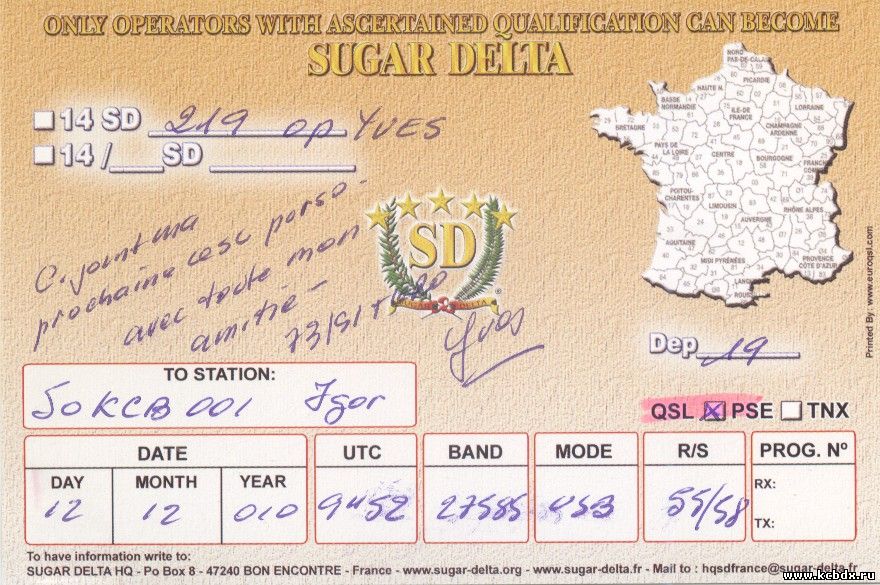 ONLY OPERATORS WITH ASCERTAINED QUALIFICATION CAN BECOME
SUGAR DELTA
14 SD 219 op YVES
14 /___SD
C. joint ma
prochaine
avec toute mon
amitié -
73/51
Yves
SD
SUGAR DELTA
NORD
PAS-DE-CALAIS
PICARDIE
HAUTE N.
BASSE
NORMANDIE
ILE-DE
FRANCE
LORRAINE
CHAMPAGNE
ARDENNE
BRETAGNE
PAYS DE
LA LOIRE
CENTRE
BOURGOGNE
FRANCHE
COMTE
POITOU-
CHARENTES
LIMOUSIN
AUVERGNE
RHÔNE ALPES
AQUITAINE
MIDI PYRÉNÉES
PROVENCE
CÔTE D'AZUR
Printed By: www.euroqsl.com
Dep 19
TO STATION:
50 KCB 001 Igor
QSL PSE TNX
DATE UTC BAND MODE R/S PROG. Nº
DAY MONTH YEAR
12 12 010 9H52 27585 USB 55/58
RX:
TX:
To have information write to:
SUGAR DELTA HQ - Po Box 8 - 47240 BON ENCONTRE - France - www.sugar-delta.org - www.sugar-delta.fr - Mail to : hqsdfrance@sugar-delta.fr
www.kcbdx.ru